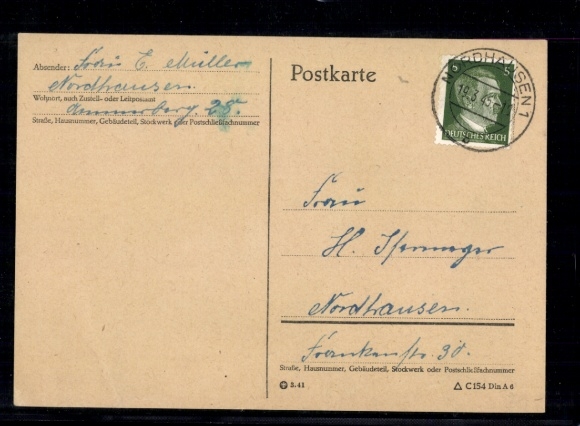 Absender: Frau E. Müller
Nordhausen
Wohnort, auch Zustell- oder Leitpostamt
25.
Straße, Hausnummer, Gebäudeteil, Stockwerk oder Postschließfachnummer
Postkarte
NORDHAUSEN 1
DEUTSCHES REICH
Frau
H.
Nordhausen.
Frankenstr. 30.
Straße, Hausnummer, Gebäudeteil, Stockwerk oder Postschließfachnummer
3.41
C 154 Din A 6